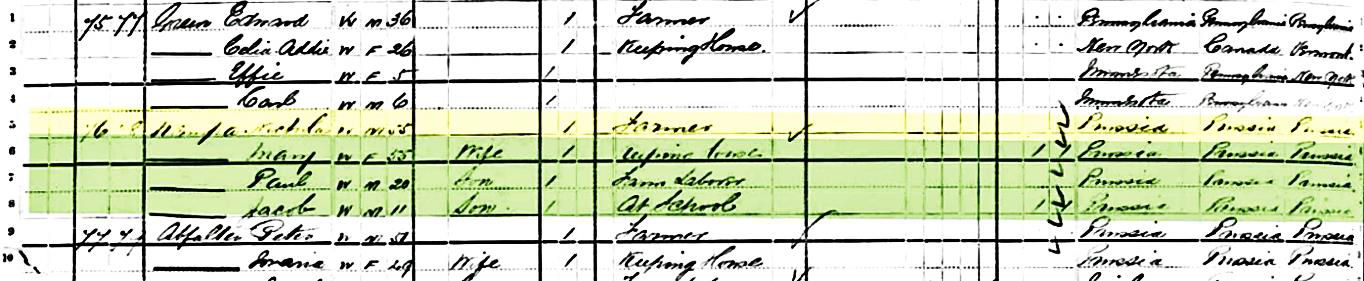 1 75 77 Edward W M 36 1 Farmer Pennsylvania Pennsylvania Pennsylvania
2 Celia Addie W F 26 1 Keeping House. New York Canada Vermont.
3 Effie W F 5 1 Minnesota Pennsylvania New York
4 Carl W M 6 1 Minnesota
5 76 55 1 Farmer Prussia Prussia Prussia
6 Mary W F 55 Wife 1 Keeping House 1 Prussia Prussia Prussia
7 Paul W M 20 Son 1 Farm Laborer Prussia Prussia Prussia
8 Jacob W M 11 Son 1 At School 1 Prussia Prussia Prussia
9 77 79 Peter 51 1 Farmer Prussia Prussia Prussia
10 Maria W F 49 Wife 1 Keeping House Prussia Prussia Prussia